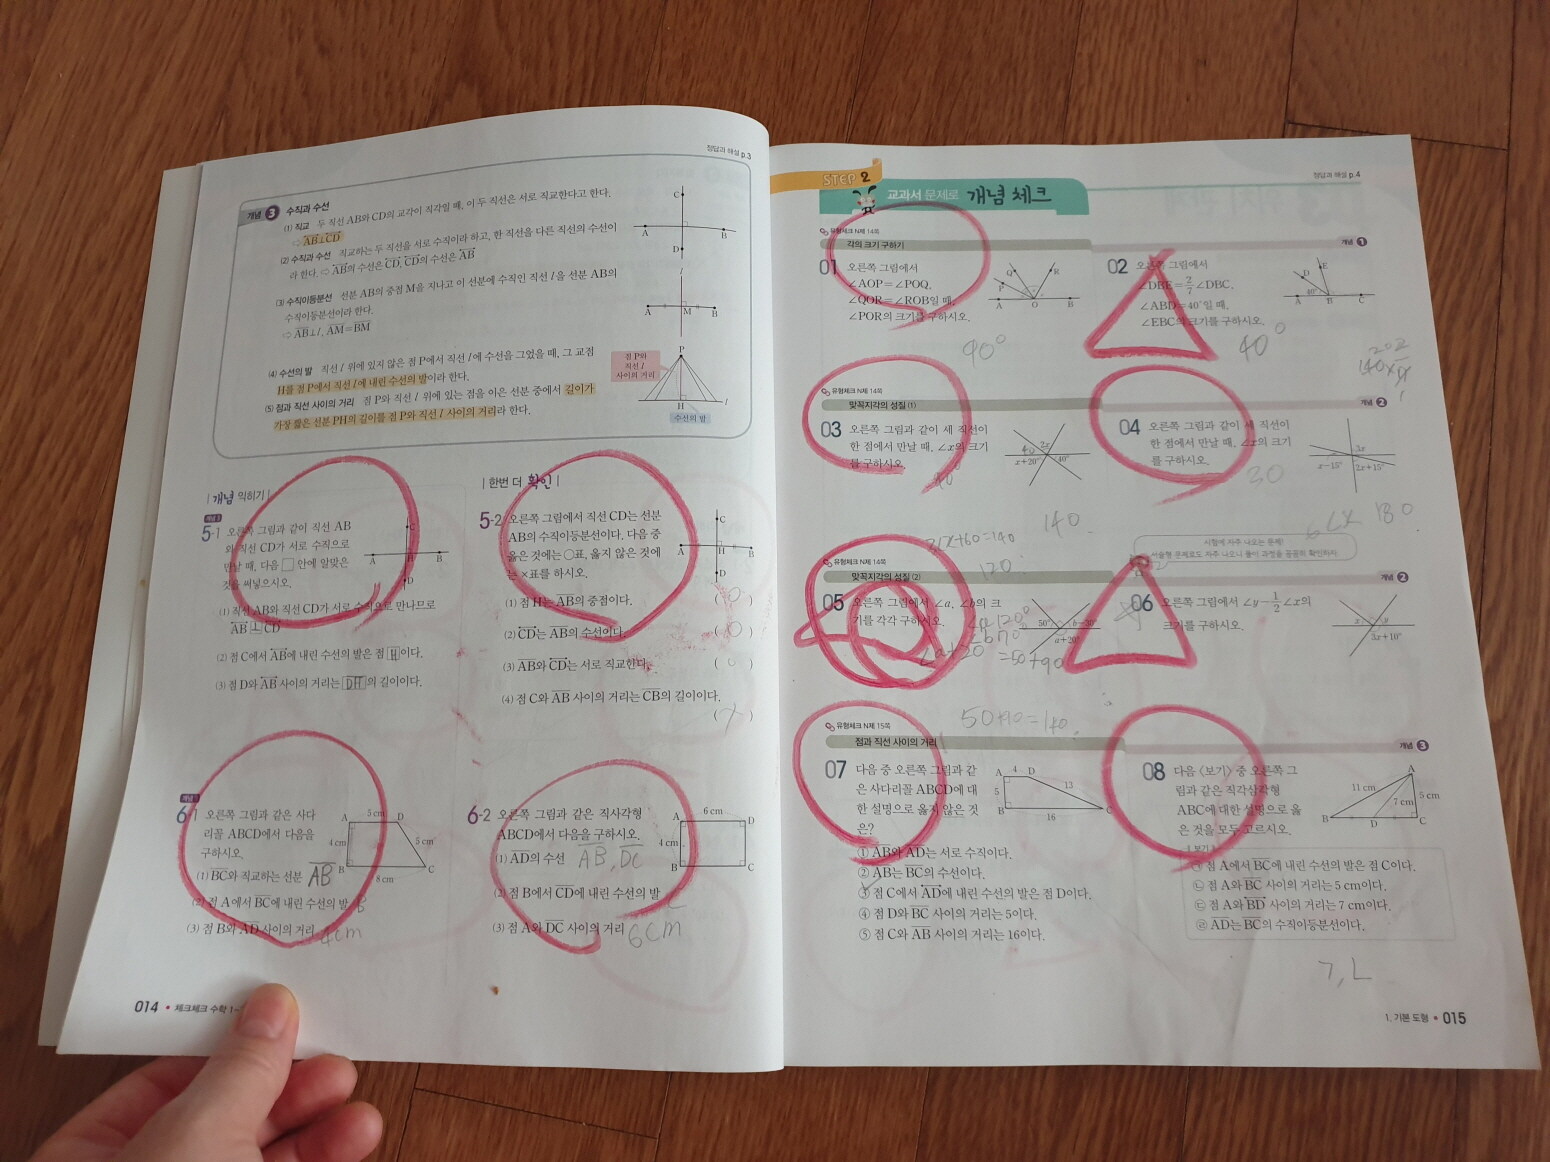 정답과 해설 p.3
개념 3 수직과 수선
(1) 직교 두 직선 AB와 CD의 교각이 직각일 때, 이 두 직선은 서로 직교한다고 한다.
⇨ AB⊥CD
(2) 수직과 수선 직교하는 두 직선을 서로 수직이라 하고, 한 직선을 다른 직선의 수선이
라 한다. ⇨ AB의 수선은 CD, CD의 수선은 AB
(3) 수직이등분선 선분 AB의 중점 M을 지나고 이 선분에 수직인 직선 l을 선분 AB의
수직이등분선이라 한다.
⇨ AB⊥l, AM=BM
(4) 수선의 발 직선 l 위에 있지 않은 점 P에서 직선 l에 수선을 그었을 때, 그 교점
H를 점 P에서 직선 l에 내린 수선의 발이라 한다.
(5) 점과 직선 사이의 거리 점 P와 직선 l 위에 있는 점을 이은 선분 중에서 길이가
가장 짧은 선분 PH의 길이를 점 P와 직선 l 사이의 거리라 한다.
C
A B
D
l
A M B
점 P와
직선 l
사이의 거리
P
H l
수선의 발
개념 익히기
개념 3
5-1 오른쪽 그림과 같이 직선 AB
와 직선 CD가 서로 수직으로
만날 때, 다음 □ 안에 알맞은
것을 써넣으시오.
C
A H B
D
(1) 직선 AB와 직선 CD가 서로 수직으로 만나므로
AB ⊥ CD
(2) 점 C에서 AB에 내린 수선의 발은 점 H이다.
(3) 점 D와 AB 사이의 거리는 DH의 길이이다.
한번 더 확인
5-2 오른쪽 그림에서 직선 CD는 선분
AB의 수직이등분선이다. 다음 중
옳은 것에는 ○표, 옳지 않은 것에
는 ×표를 하시오.
C
A H B
D
(1) 점 H는 AB의 중점이다.
( O )
(2) CD는 AB의 수선이다. ( O )
(3) AB와 CD는 서로 직교한다. ( O )
(4) 점 C와 AB 사이의 거리는 CB의 길이이다.
( X )
6-1 오른쪽 그림과 같은 사다
리꼴 ABCD에서 다음을
구하시오.
5 cm
A D
4 cm 5 cm
B 8 cm C
(1) BC와 직교하는 선분 AB
(2) 점 A에서 BC에 내린 수선의 발 B
(3) 점 B와 AD 사이의 거리 4cm
6-2 오른쪽 그림과 같은 직사각형
ABCD에서 다음을 구하시오.
6 cm
A D
4 cm
B C
(1) AD의 수선 AB, DC
(2) 점 B에서 CD에 내린 수선의 발 C
(3) 점 A와 DC 사이의 거리 6cm
014 • 체크체크 수학 1-
정답과 해설 p.4
STEP 2
교과서 문제로 개념 체크
유형체크 N제 14쪽
각의 크기 구하기
개념 1
01 오른쪽 그림에서
∠AOP=∠POQ,
∠QOR=∠ROB일 때,
∠POR의 크기를 구하시오.
Q R
P
A O B
90°
02 오른쪽 그림에서
∠DBE=2/7∠DBC,
∠ABD=40°일 때,
∠EBC의 크기를 구하시오.
E
D
40°
A B C
40°
유형체크 N제 14쪽
맞꼭지각의 성질 (1)
개념 2
03 오른쪽 그림과 같이 세 직선이
한 점에서 만날 때, ∠x의 크기
를 구하시오.
2x
x+20° 40°
40°
04 오른쪽 그림과 같이 세 직선이
한 점에서 만날 때, ∠x의 크기
를 구하시오.
3x
x-15° 2x+15°
30
140
180
3x+60=140
120
유형체크 N제 14쪽
맞꼭지각의 성질 (2)
시험에 자주 나오는 문제!
서술형 문제로도 자주 나오니 풀이 과정을 꼼꼼히 확인하자.
개념 2
05 오른쪽 그림에서 ∠a, ∠b의 크
기를 각각 구하시오.
50° b-30°
a+20°
∠a 120°
∠b 70°
∠a+20 =50+90
50+90=140
06 오른쪽 그림에서 ∠y-1/2∠x의
크기를 구하시오.
x y
3x+10°
유형체크 N제 15쪽
점과 직선 사이의 거리
개념 3
07 다음 중 오른쪽 그림과 같
은 사다리꼴 ABCD에 대
한 설명으로 옳지 않은 것
은?
A 4 D
5 13
B 16 C
① AB와 AD는 서로 수직이다.
② AB는 BC의 수선이다.
③ 점 C에서 AD에 내린 수선의 발은 점 D이다.
④ 점 D와 BC 사이의 거리는 5이다.
⑤ 점 C와 AB 사이의 거리는 16이다.
08 다음 〈보기〉 중 오른쪽 그
림과 같은 직각삼각형
ABC에 대한 설명으로 옳
은 것을 모두 고르시오.
A
11 cm 5 cm
7 cm
B D C
보기
㉠ 점 A에서 BC에 내린 수선의 발은 점 C이다.
㉡ 점 A와 BC 사이의 거리는 5 cm이다.
㉢ 점 A와 BD 사이의 거리는 7 cm이다.
㉣ AD는 BC의 수직이등분선이다.
ㄱ, ㄴ
1. 기본 도형 • 015